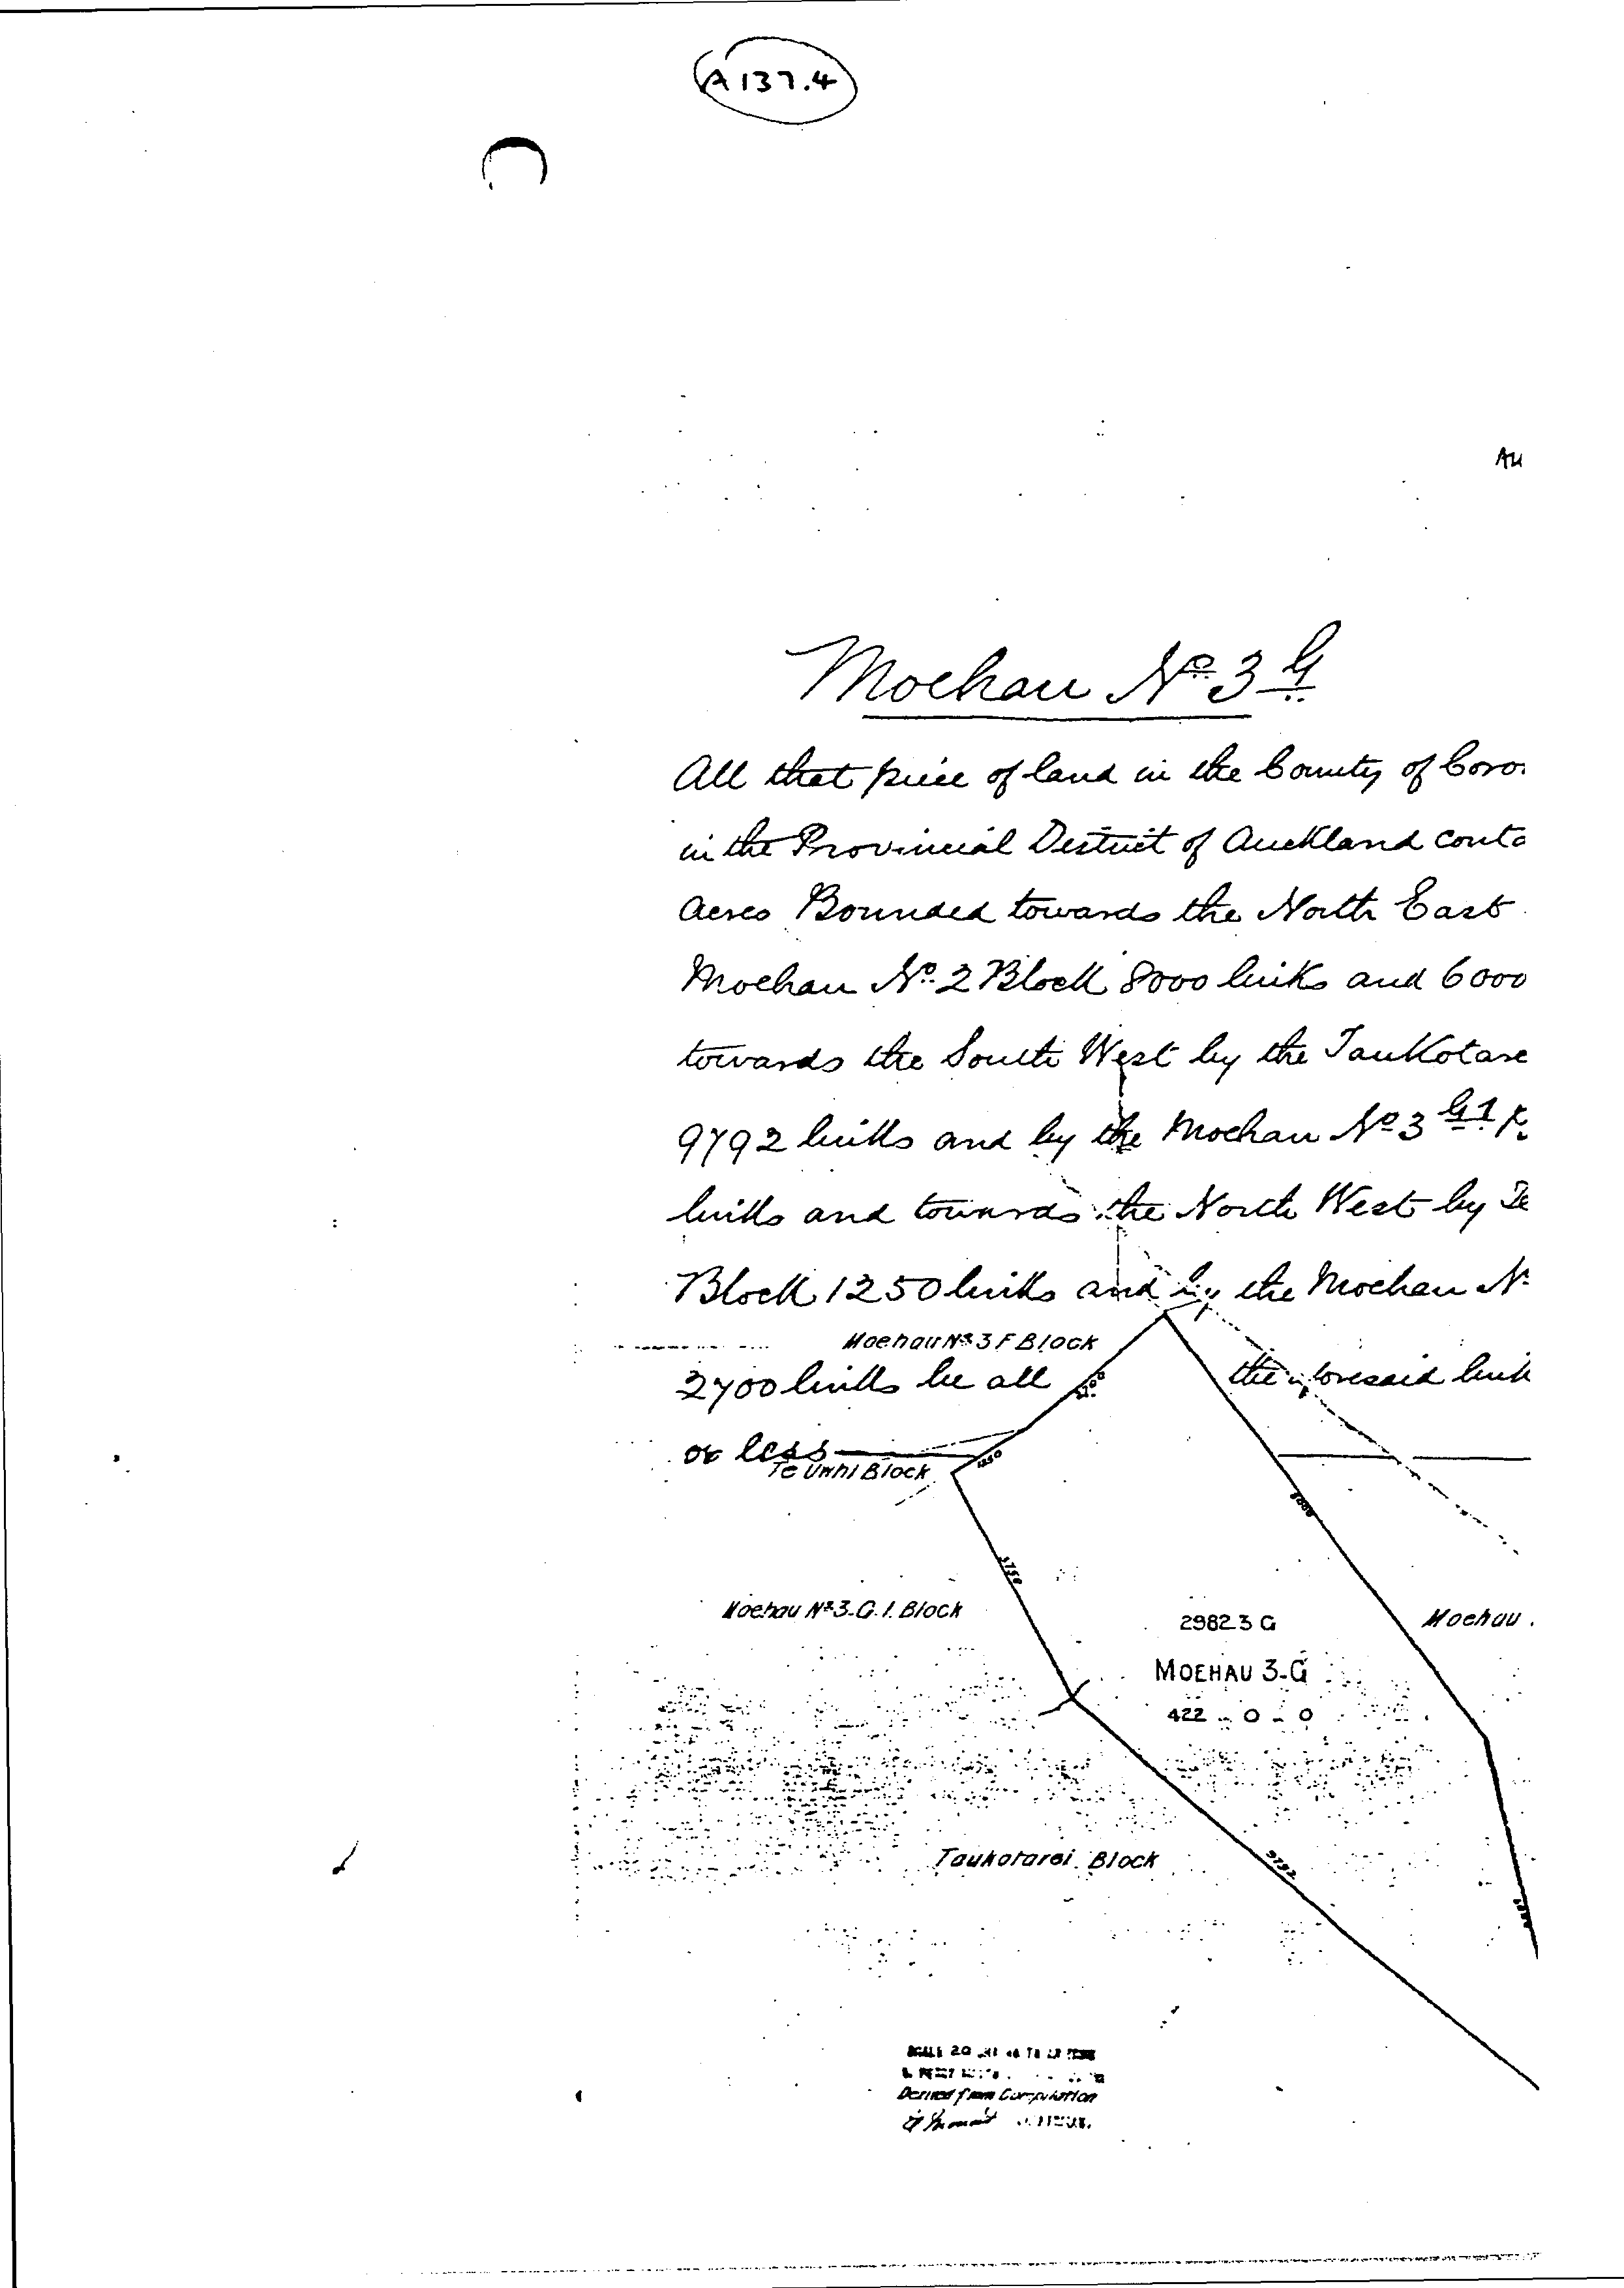 A137.4
Au
Moehau No. 3 G
All that piece of land in the County of Coro
in the Provincial District of Auckland conta
acres Bounded towards the North East
Moehau No. 2 Block 8000 links and 6000
towards the South West by the Taukotare
9792 links and by the Moehau No 3 G1
links and towards the North West by Te
Block 1250 links and by the Moehau N
Moehau No 3 F Block
2700 links be all the aforesaid link
or less
Te Uwhi Block
1250
8000
3750
Moehau No 3-G.1. Block
2982 3 G
Moehau
MOEHAU 3-G
422 - 0 - 0
Taukotarei Block
9792
Derived from Computation